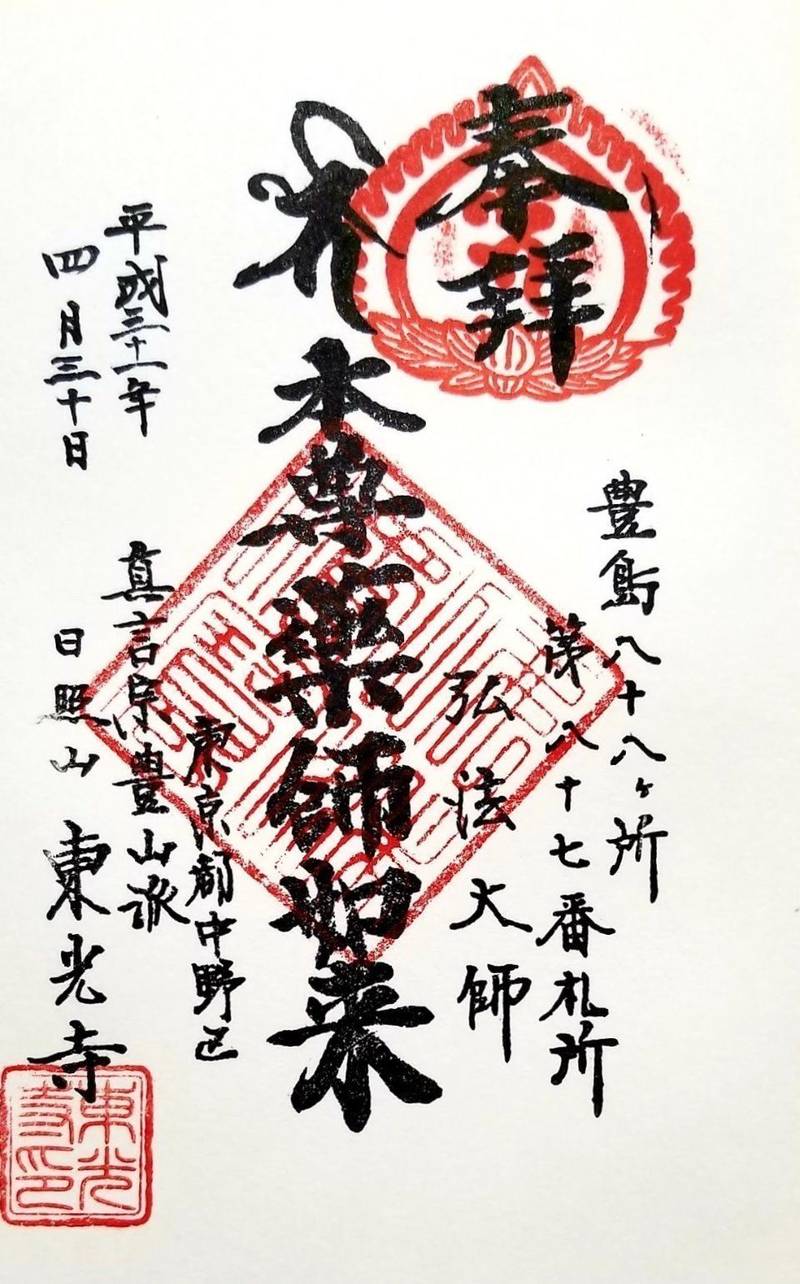 奉拝
豊島八十八ヶ所
第八十七番札所
弘法大師
本尊薬師如来
東京都中野区
真言宗豊山派
日照山 東光寺
平成三十一年
四月三十日
東光寺印